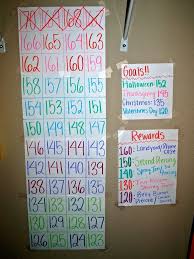 166 165 164 163
162 161 160 159
158 157 156 155
154 153 152 151
150 149 148 147
146 145 144 143
142 141 140 139
138 137 136 135
134 133 132 131
130 129 128 127
126 125 124 123
Goals!!
Halloween 152
Thanksgiving 145
Christmas: 135
Valentines Day 120
Rewards
160:
150: Second Piercing
140: Spring
130:
120: